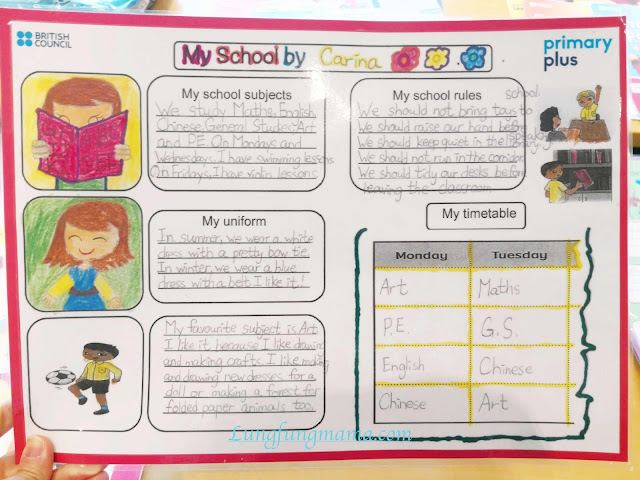 BRITISH
COUNCIL
My School by Carina
primary
plus
My school subjects
We study Maths, English,
Chinese General Studies, Art
and P.E. On Mondays and
Wednesdays, I have swimming lessons
On Fridays, I have violin lessons
My school rules
school.
We should not bring toys to
We should raise our hand before
speak
We should keep quiet in the library.
We should not run in the corridor.
We should tidy our desks before
leaving the classroom
My uniform
In summer, we wear a white
dress with a pretty bow tie.
In winter, we wear a blue
dress with a belt. I like it!
My favourite subject is Art
I like it because I like drawing
and making crafts. I like making
and drawing new dresses for a
doll or making a forest for
folded paper animals too.
My timetable
Monday Tuesday
Art Maths
P.E. G.S.
English Chinese
Chinese Art
Lungfungmama.com